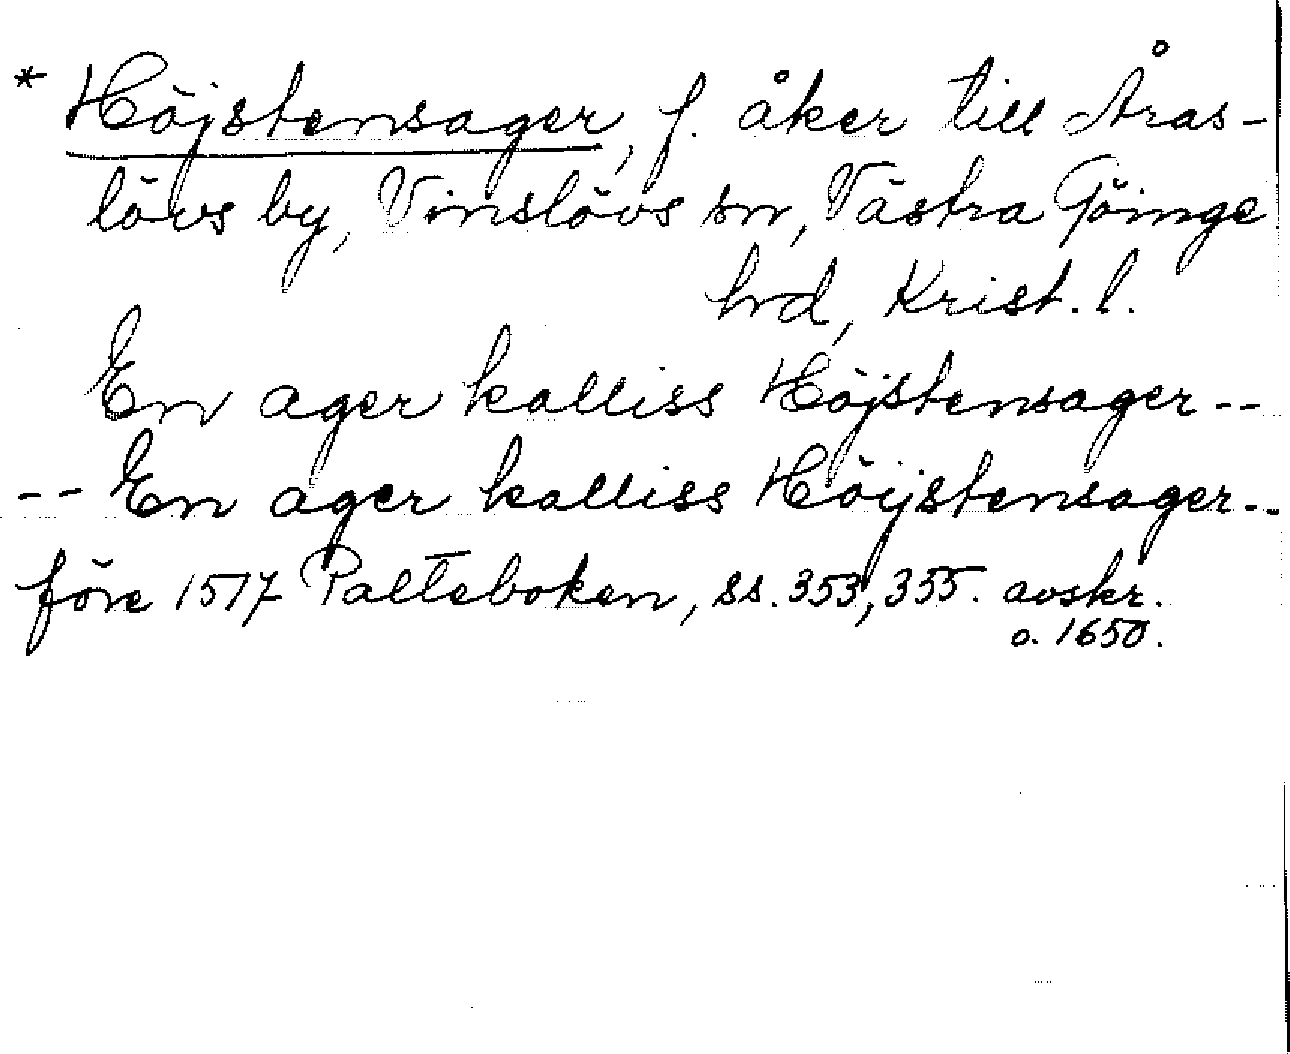 * Höjstensager, f. åker till Åras-
lövs by, Vinslövs sn, Västra Göinge
hrd, Krist. l.
En ager kalliss Höjstensager --
-- En ager kalliss Höijstensager --
före 1517 Palteboken, ss. 353, 355. avskr.
o. 1650.